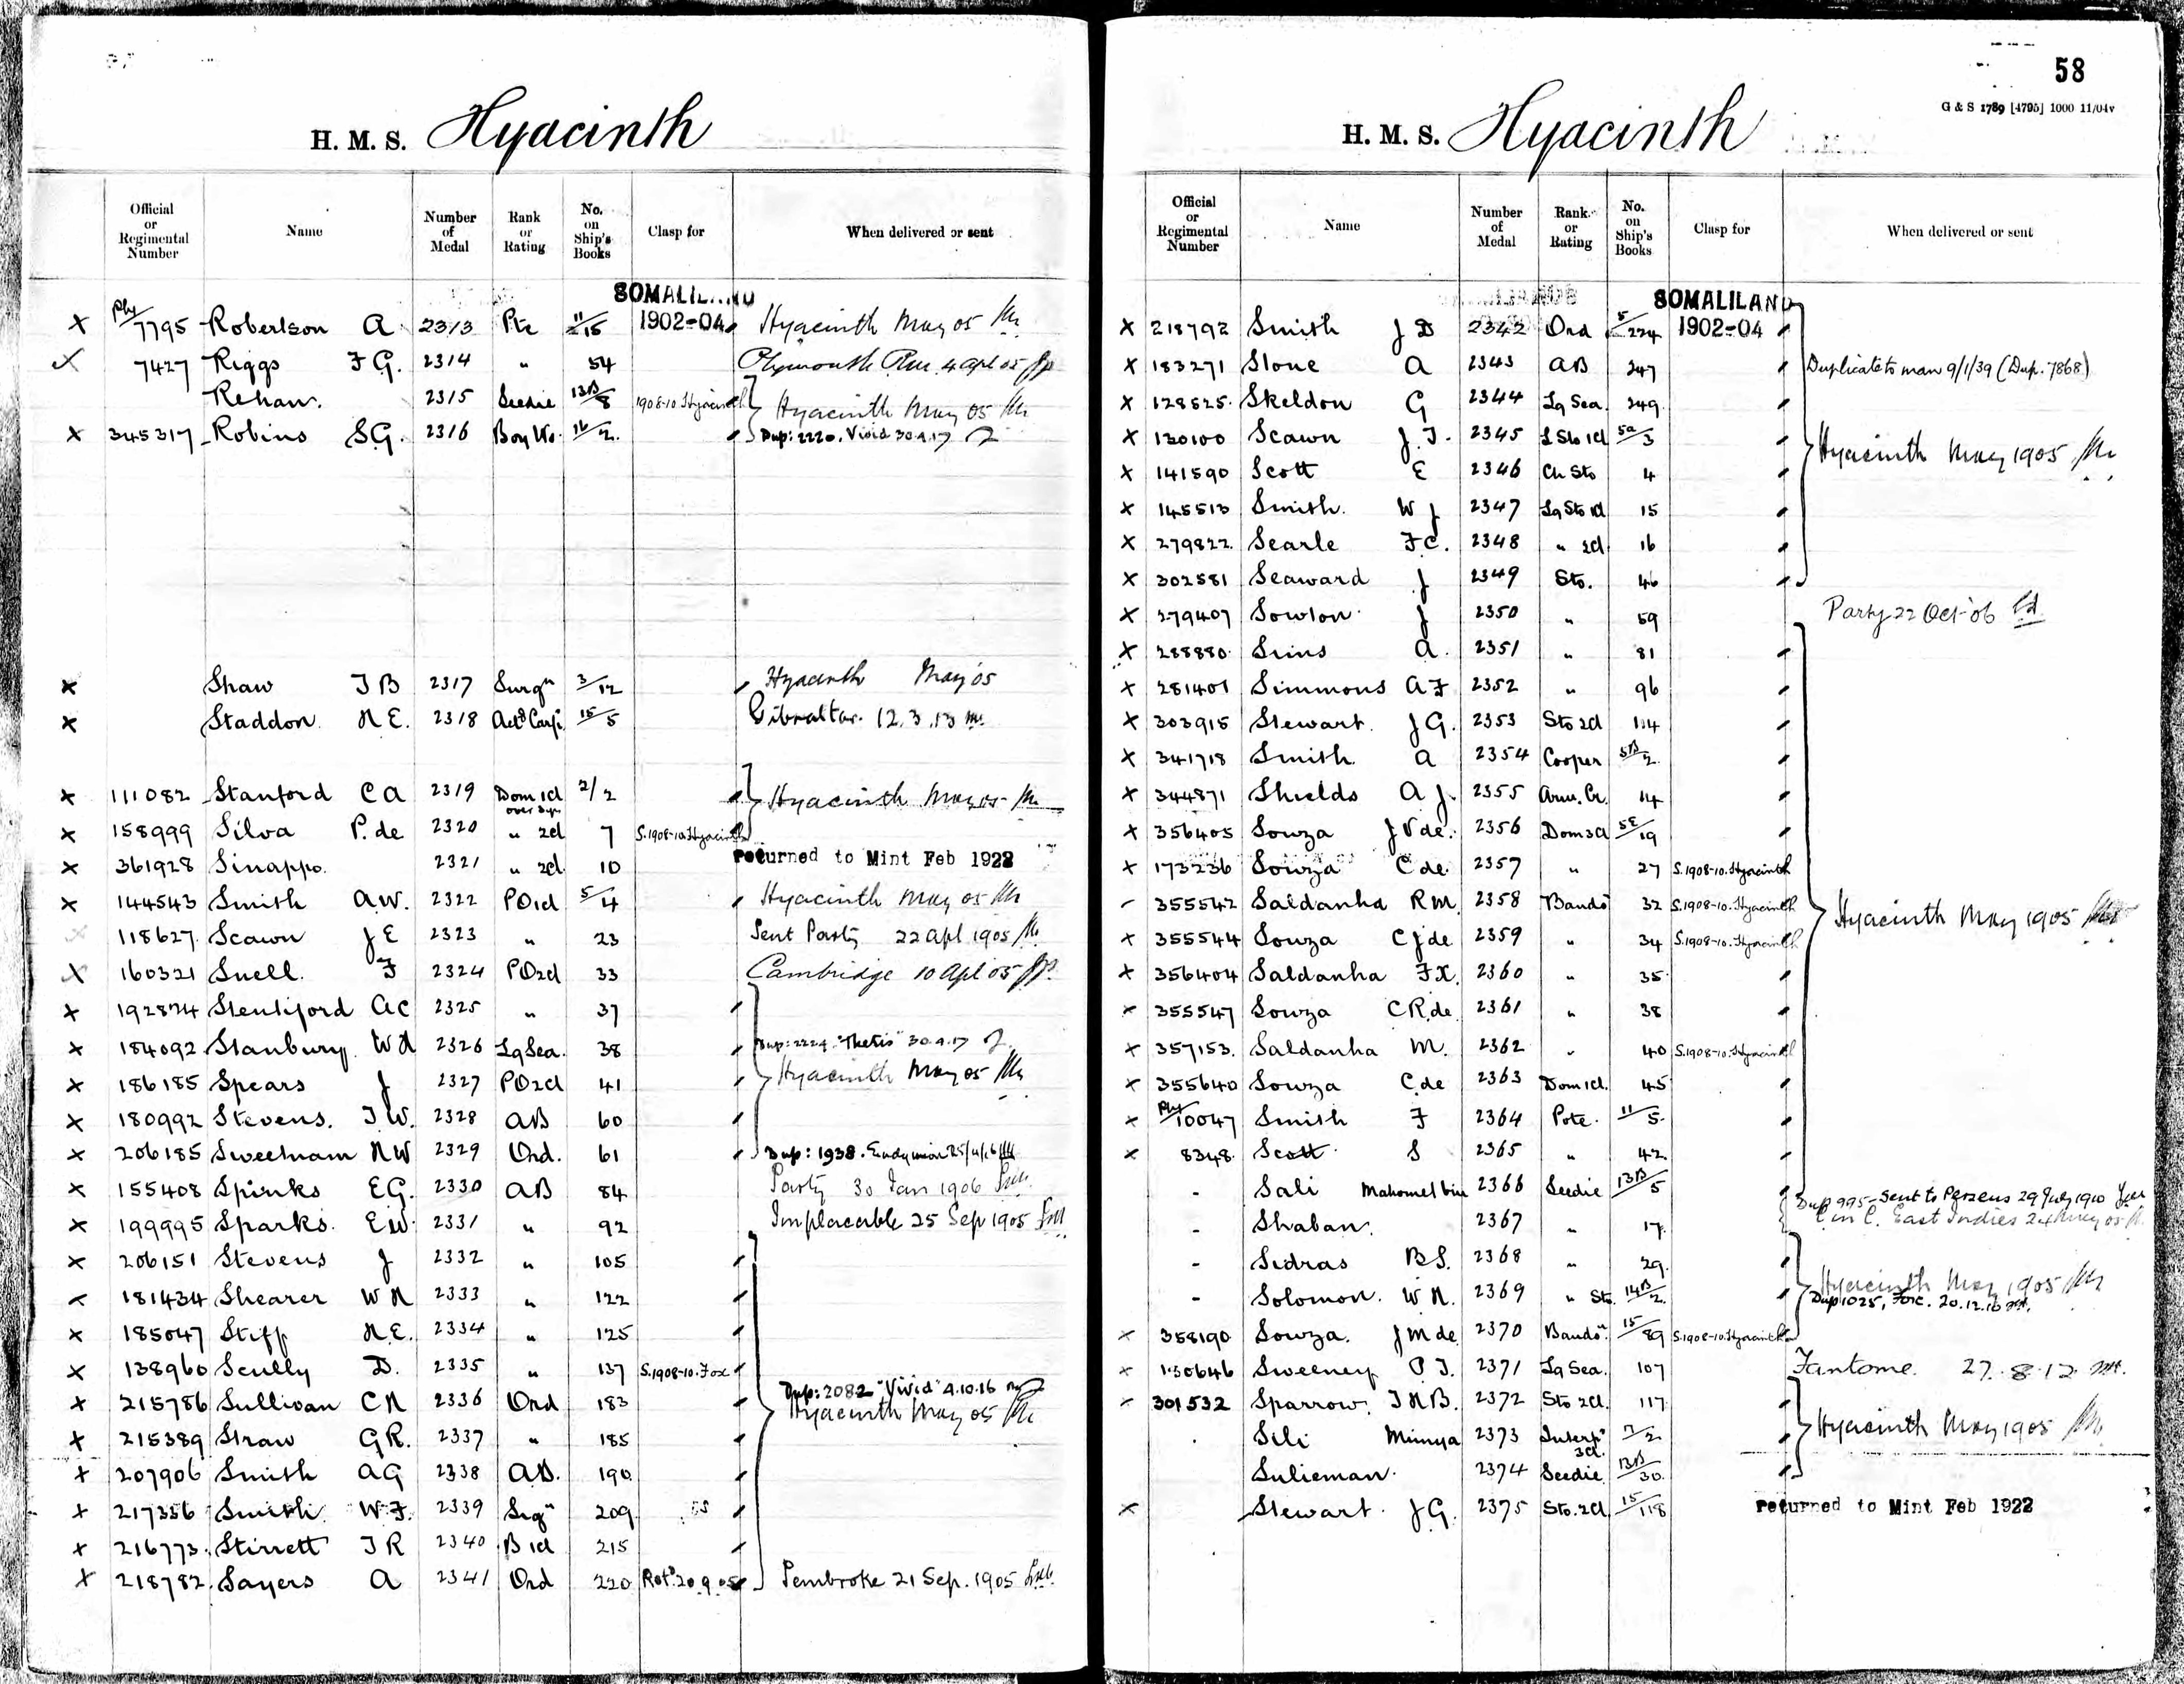 H. M. S. Hyacinth
Official or Regimental Number Name Number of Medal Rank or Rating No. on Ship's Books Clasp for When delivered or sent
SOMALILAND
x Ply/7795 Robertson A 2313 Pte 11/15 1902-04 Hyacinth May 05
x 7427 Riggs F G. 2314 " 54 Plymouth Div. 4 Apl 05
Rehan. 2315 Seedie 13B/8 1908-10 Hyacinth Hyacinth May 05
x 345317 Robins S G. 2316 Boy 16/2. Dup: 2220. Vivid 30.4.17
x Shaw T B 2317 Surgn 3/12 Hyacinth May 05
x Staddon H E. 2318 Actg Carpr 15/5 Gibraltar. 12.3.13
x 111082 Stanford C A 2319 Dom 1cl 2/2 Hyacinth May 05
over 3 yrs
x 158999 Silva P. de 2320 " 2cl 7 S.1908-10 Hyacinth
x 361928 Sinappo. 2321 " 2cl 10 returned to Mint Feb 1922
x 144543 Smith A W. 2322 PO1cl 5/4 Hyacinth May 05
x 118627 Scawn J E 2323 " 23 Sent Party 22 Apl 1905
x 160321 Snell. F 2324 PO2cl 33 Cambridge 10 Apl 05
x 192874 Stentiford A C 2325 " 37
x 184092 Stanbury W H 2326 Lg Sea. 38 Dup: 2224 "Thetis" 30.4.17
x 186185 Spears J 2327 PO2cl 41 Hyacinth May 05
x 180992 Stevens. T W. 2328 AB 60
x 206185 Sweetnam H W 2329 Ord. 61 Dup: 1938. Endymion 25/4/16
x 155408 Spinks E G. 2330 AB 84 Party 30 Jan 1906
x 199995 Sparks. E W. 2331 " 92 Implacable 25 Sep 1905
x 206151 Stevens J 2332 " 105
x 181434 Shearer W H 2333 " 122
x 185047 Stiff H. E. 2334 " 125
x 138960 Scully D. 2335 " 137 S.1908-10. Fox
x 215786 Sullivan C H 2336 Ord 183 Dup: 2082 "Vivid" 4.10.16
Hyacinth May 05
x 215389 Straw G R. 2337 " 185
x 207906 Smith A G 2338 AB. 190
x 217356 Smith. W. F. 2339 Sign 209
x 216773 Stirrett T R 2340 B 1cl 215
x 218782 Sayers A 2341 Ord 220 Retd 20 9 05 Pembroke 21 Sep. 1905
58
G & S 1789 [4795] 1000 11/04v
H. M. S. Hyacinth
Official or Regimental Number Name Number of Medal Rank or Rating No. on Ship's Books Clasp for When delivered or sent
SOMALILAND
x 218792 Smith J D 2342 Ord 5/224 1902-04
x 183271 Stone A 2343 AB 247 Duplicate to man 9/1/39 (Dup. 7868)
x 128525 Skeldon G 2344 Lg Sea. 249
x 130100 Scawn J. T. 2345 L Sto 1cl 5a/3 Hyacinth May 1905
x 141590 Scott E 2346 Ch Sto 4
x 145513 Smith. W J 2347 Lg Sto 1cl 15
x 279822 Searle F C. 2348 " 2cl 16
x 302581 Seaward J 2349 Sto. 46
x 279407 Sowton J 2350 " 59 Party 22 Oct 06
x 288880 Sims A. 2351 " 81
x 281401 Simmons A F 2352 " 96
x 303915 Stewart. J G. 2353 Sto 2cl 114
x 341718 Smith. A 2354 Cooper 5B/2
x 344871 Shields A J. 2355 Arm. Cr. 14
x 356405 Souza J V de. 2356 Dom 3cl 5E/19
x 173236 Souza C de 2357 " 27 S.1908-10. Hyacinth
- 355542 Saldanha R M. 2358 Bandsn 32 S.1908-10. Hyacinth Hyacinth May 1905
x 355544 Souza C J de 2359 " 34 S.1908-10. Hyacinth
x 356404 Saldanha F X. 2360 " 35
x 355547 Souza C R de. 2361 " 38
x 357153. Saldanha M. 2362 " 40 S.1908-10. Hyacinth
x 355640 Souza C de 2363 Dom 1cl. 45
x Ply/10047 Smith F 2364 Pote. 11/5
x 8348 Scott S 2365 " 42
- Sali Mahomet bin 2366 Seedie 13B/5 Dup 995 - Sent to Perseus 29 July 1910
- Shaban. 2367 " 17 C in C. East Indies 24 May 05
- Sidras B S. 2368 " 29.
- Solomon. W H. 2369 " Sto. 14B/2. Hyacinth May 1905
Dup 1025, Fox. 20.12.10
x 358190 Souza. J M de 2370 Bandsn 15/89 S.1908-10. Hyacinth
x 130646 Sweeney P J. 2371 Lg Sea. 107 Fantome. 27.8.12
- 301532 Sparrow. T H B. 2372 Sto 2cl. 117
Sili Mumya 2373 Interpr 3cl. 7/2 Hyacinth May 1905
Sulieman. 2374 Seedie 13B/30
x Stewart. J G. 2375 Sto. 2cl 15/118 returned to Mint Feb 1922